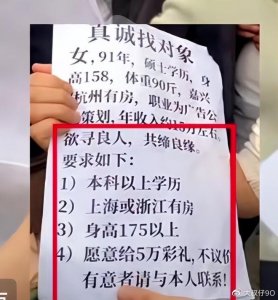 真诚找对象
女，91年，硕士学历，身
高158，体重90斤，嘉兴
杭州有房，职业为广告公
策划，年收入约15万左右。
欲寻良人，共缔良缘。
要求如下：
1）本科以上学历
2）上海或浙江有房
3）身高175以上
4）愿意给5万彩礼，不议价
有意者请与本人联系！